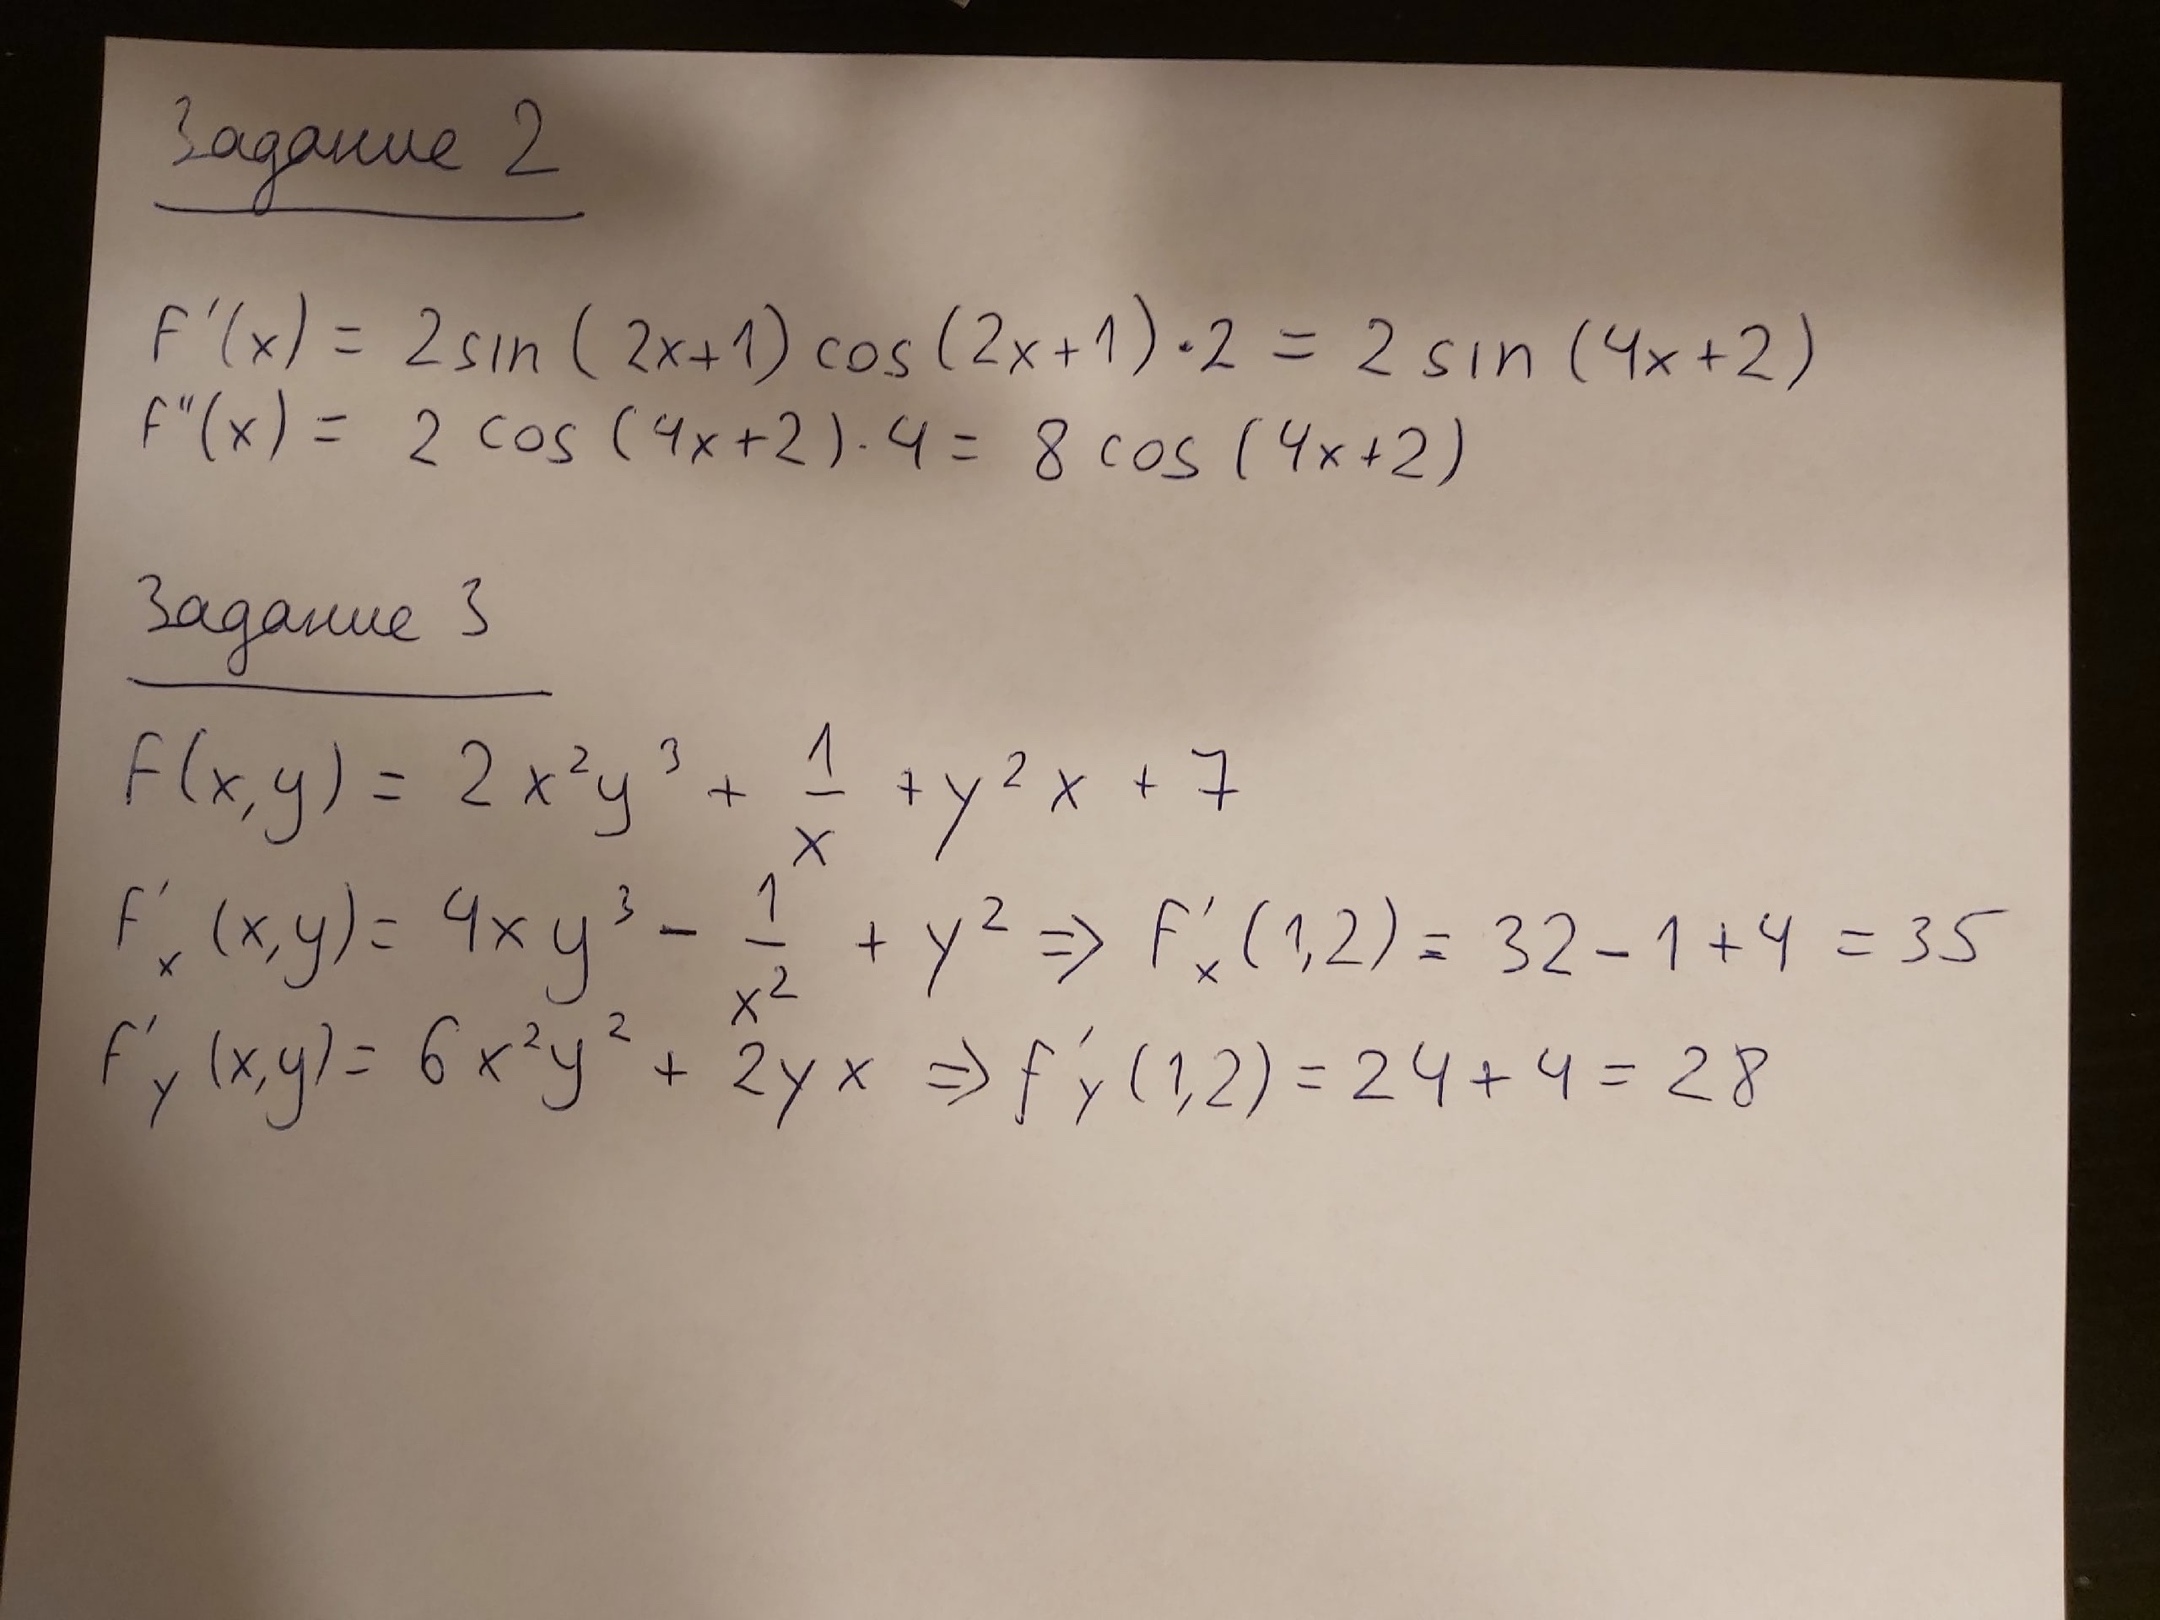 Задание 2
F'(x) = 2 sin (2x+1) cos (2x+1)·2 = 2 sin (4x+2)
F''(x) = 2 cos (4x+2)·4 = 8 cos (4x+2)
Задание 3
F(x,y) = 2x²y³ + 1/x + y²x + 7
F'ₓ (x,y) = 4xy³ - 1/x² + y² => F'ₓ (1,2) = 32 - 1 + 4 = 35
F'y (x,y) = 6x²y² + 2yx => F'y (1,2) = 24 + 4 = 28